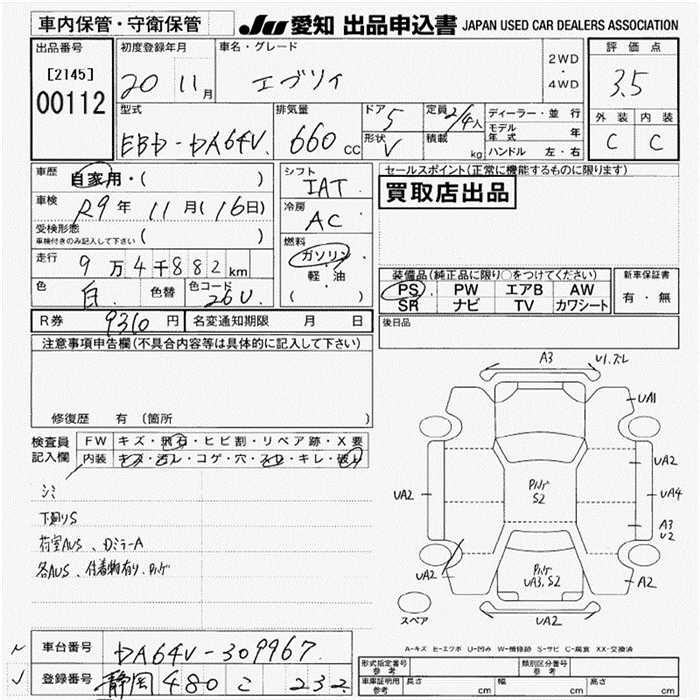 車内保管・守衛保管
JU 愛知 出品申込書 JAPAN USED CAR DEALERS ASSOCIATION
出品番号
[2145]
00112
初度登録年月
20 11月
車名・グレード
エブリイ
2WD
・
4WD
評価点
3.5
外装 内装
C C
型式
EBD-DA64V
排気量
660 cc
ドア 5
形状 V
定員 2/4人
積載 kg
ディーラー・並行
モデル年式 年
ハンドル 左・右
車歴
自家用・( )
車検
R9年 11月(16日)
受検形態
車検付きのみ記入して下さい ( )
走行
9万4千882km
色 白
色替
色コード 26U
シフト
IAT
冷房
AC
燃料
ガソリン
軽・油
( )
セールスポイント(正常に機能するものに限ります)
買取店出品
装備品(純正品に限り○をつけてください)
PS PW エアB AW
SR ナビ TV カワシート
新車保証書
有・無
R券 9310円
名変通知期限 月 日
後日品
注意事項申告欄(不具合内容等は具体的に記入して下さい)
修復歴 有(箇所 )
検査員
記入欄
FW キズ・飛石・ヒビ割・リペア跡・X要
内装 キズ・汚レ・コゲ・穴・スレ・キレ・破レ
シミ
下廻りS
荷室AUS、DミラーA
各AUS、付着物有り、Pハゲ
A3
U1.ズレ
UA1
UA2
UA2
Pハゲ
S2
UA4
A3
U2
UA2
Pハゲ
UA3,S2
A2
UA2
スペア
A-キズ E-エクボ U-凹み W-補修跡 S-サビ C-腐食 XX-交換済
車台番号 DA64V-309967
登録番号 静岡 480 こ 232
形式指定番号
参考
類別区分番号
参考
車庫証明用
参考
長さ cm
幅 cm
高さ cm